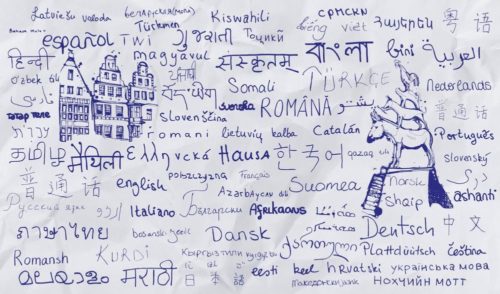 Latviešu valoda беларуская(мова) Kiswahili српски Հայերեն 粵语
Türkmen tiếng việt
español Twi ગુજરાતી Tоҷикӣ বাংলা bini العربية
हिन्दी magyarul संस्कृतम्
o'zbek tili Somali TÜRKÇE Nederlands
فارسی བོད་ཡིག slovenščina svenska ROMÂNĂ پښتو 普通话
татар теле
עברית romani lietuvių kalba Catalán Português
தமிழ் मैथिली Ελληνικά Hausa 한국어 qazaq tili slovenský
普通话 english polszczyzna français Suomea Norsk ashanti
Русский язык اردو Italiano Български Azərbaycan dili Afrikaans Shqip
ภาษาไทย bosanski jezik Dansk Deutsch 中文
Romansh KURDÎ Кыргыз тили ქართული Plattdüütsch čeština
മലയാളം मराठी 日本語 eesti keel hrvatski українська мова
македонски јазик Нохчийн мотт